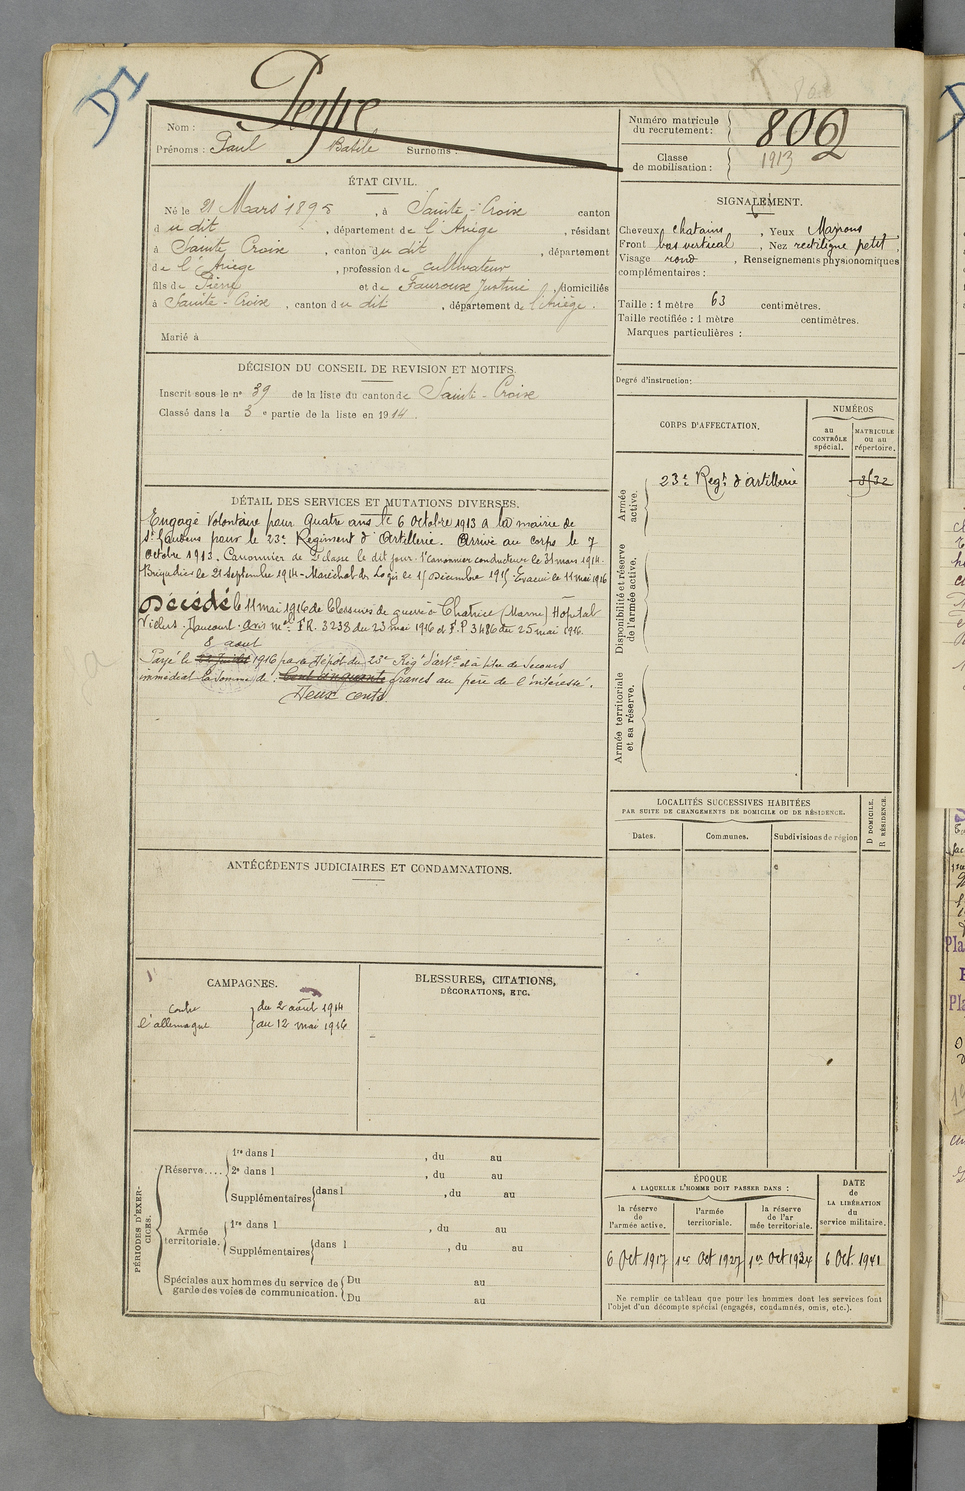 D7
Peyre
Nom :
Prénoms : Paul Surnoms :
Numéro matricule
du recrutement : 802
Classe
de mobilisation : 1913
ÉTAT CIVIL.
Né le 21 Mars 1895, à Sainte-Croix canton
du dit, département de l'Ariège, résidant
à Sainte Croix, canton du dit, département
de l'Ariège, profession de cultivateur
fils de Pierre et de Fauroux Justine, domiciliés
à Sainte-Croix, canton du dit, département de l'Ariège.
Marié à
SIGNALEMENT.
Cheveux chatains, Yeux Marrons
Front bas vertical, Nez rectiligne petit,
Visage rond, Renseignements physionomiques
complémentaires :
Taille : 1 mètre 63 centimètres.
Taille rectifiée : 1 mètre centimètres.
Marques particulières :
Degré d'instruction :
DÉCISION DU CONSEIL DE REVISION ET MOTIFS.
Inscrit sous le nº 39 de la liste du canton de Sainte-Croix
Classé dans la 3e partie de la liste en 1914
CORPS D'AFFECTATION.
NUMÉROS
au
CONTRÔLE
spécial.
MATRICULE
ou au
répertoire.
Armée
active.
23e Regt d'artillerie
Disponibilité et réserve
de l'armée active.
Armée territoriale
et sa réserve.
DÉTAIL DES SERVICES ET MUTATIONS DIVERSES.
Engagé Volontaire pour quatre ans le 6 Octobre 1913 a la mairie de
St Gaudens pour le 23e Regiment d'Artillerie. Arrivé au corps le 7
Octobre 1913. Canonnier de 2e classe le dit jour. 1er Canonnier conducteur le 31 mars 1914.
Brigadier le 21 septembre 1914 - Maréchal des Logis le 15 Décembre 1915 Evacué le 11 mai 1916
Décédé le 11 mai 1916 de blessures de guerre à Chatrice (Marne) Hôpital
Villers Daucourt. Avis mel FR. 3238 du 23 mai 1916 et F.P. 3486 du 25 mai 1916.
8 aout
Payé le 1916 par le Dépôt du 23e Régt d'artie à titre de Secours
immédiat la somme de : Cent cinquante francs au père de l'intéressé.
Deux cents
ANTÉCÉDENTS JUDICIAIRES ET CONDAMNATIONS.
LOCALITÉS SUCCESSIVES HABITÉES
PAR SUITE DE CHANGEMENTS DE DOMICILE OU DE RÉSIDENCE.
D DOMICILE.
R RÉSIDENCE.
Dates.
Communes.
Subdivisions de région
CAMPAGNES.
contre
l'allemagne
du 2 août 1914
au 12 mai 1916
BLESSURES, CITATIONS,
DÉCORATIONS, ETC.
PÉRIODES D'EXER-
CICES.
Réserve....
1re dans l , du au
2e dans l , du au
Supplémentaires dans l , du au
Armée
territoriale.
1re dans l , du au
Supplémentaires dans l , du au
Spéciales aux hommes du service de
garde des voies de communication.
Du au
Du au
ÉPOQUE
A LAQUELLE L'HOMME DOIT PASSER DANS :
la réserve
de
l'armée active.
l'armée
territoriale.
la réserve
de l'ar
mée territoriale.
DATE
de
LA LIBÉRATION
du
service militaire.
6 Oct 1917
1er Oct 1927
1er Oct 1934
6 Oct. 1941
Ne remplir ce tableau que pour les hommes dont les services font
l'objet d'un décompte spécial (engagés, condamnés, omis, etc.).